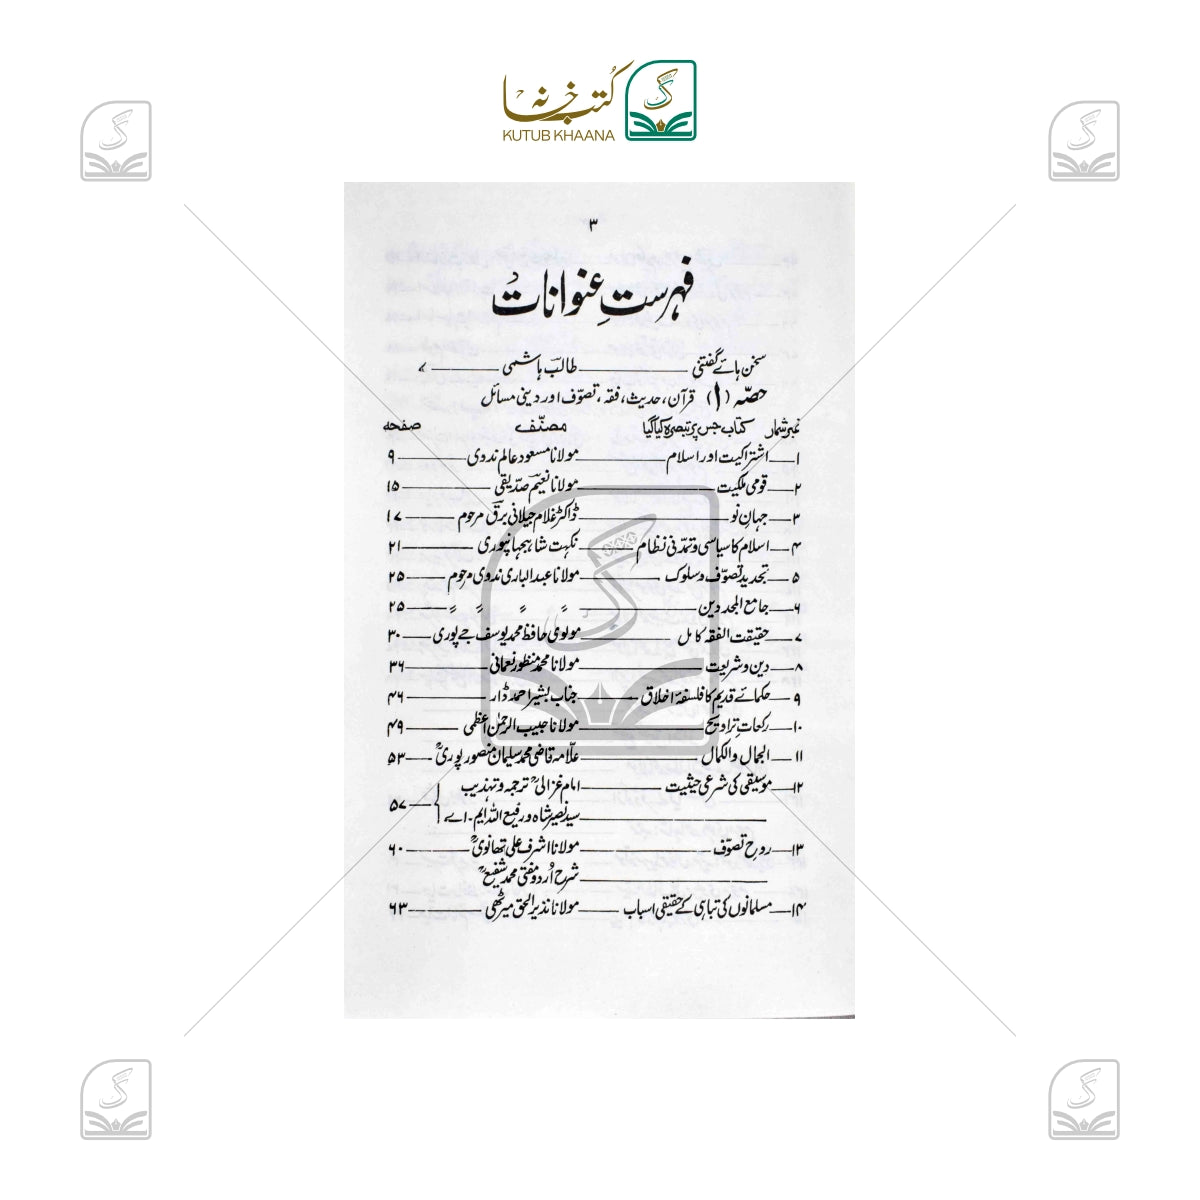 کتب خانہ
KUTUB KHAANA
۳
فہرستِ عنوانات
سخن ہائے گفتنی طالبؔ ہاشمی ۷
حصّہ (۱) قرآن، حدیث، فقہ، تصوّف اور دینی مسائل
نمبر شمار کتاب جس پر تبصرہ کیا گیا مصنّف صفحہ
۱ اشتراکیت اور اسلام مولانا مسعود عالم ندوی ۹
۲ قومی ملکیت مولانا نعیمؔ صدیقی ۱۵
۳ جہانِ نو ڈاکٹر غلام جیلانی برقؔ مرحوم ۱۷
۴ اسلام کا سیاسی و تمدّنی نظام نکہت شاہجہانپوری ۲۱
۵ تجدید تصوّف و سلوک مولانا عبدالباری ندوی مرحوم ۲۵
۶ جامع المجددین ״ ״ ״ ״ ۲۵
۷ حقیقت الفقہ کامل مولوی حافظ محمد یوسف جے پوری ۳۰
۸ دین و شریعت مولانا محمد منظور نعمانی ۳۶
۹ حکمائے قدیم کا فلسفۂ اخلاق جناب بشیر احمد ڈار ۴۶
۱۰ رکعاتِ تراویح مولانا حبیب الرحمٰن اعظمی ۴۹
۱۱ الجمال والکمال علّامہ قاضی محمد سلیمان منصور پوریؒ ۵۳
۱۲ موسیقی کی شرعی حیثیت امام غزالیؒ ترجمہ و تہذیب
سید نصیر شاہ و رفیع اللہ ایم۔اے ۵۷
۱۳ روحِ تصوّف مولانا اشرف علی تھانویؒ ۶۰
شرح اُردو مفتی محمد شفیعؒ
۱۴ مسلمانوں کی تباہی کے حقیقی اسباب مولانا نذیر الحق میرٹھی ۶۳